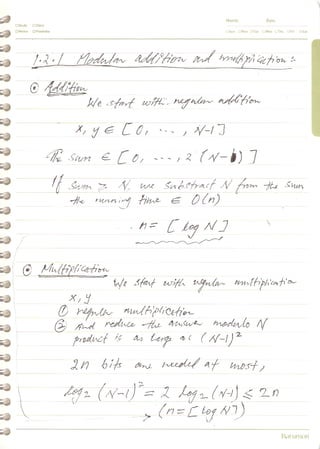 Name. Date.
1.2.1 Modular addition and multiplication :
⊙ Addition
We start with regular addition
x, y ∈ [0, ..., N-1]
The sum ∈ [0, ..., 2(N-1)]
If sum ≥ N, we substract N from the sum
the running time ∈ O(n)
n = ⌈log N⌉
⊙ Multiplication
We start with regular multiplication
x, y
① regular multiplication
② And reduce the answer modulo N
product is as large as (N-1)²
2n bits are needed at most,
log₂ (N-1)² = 2 log₂ (N-1) ≤ 2n
(n = ⌈log N⌉)